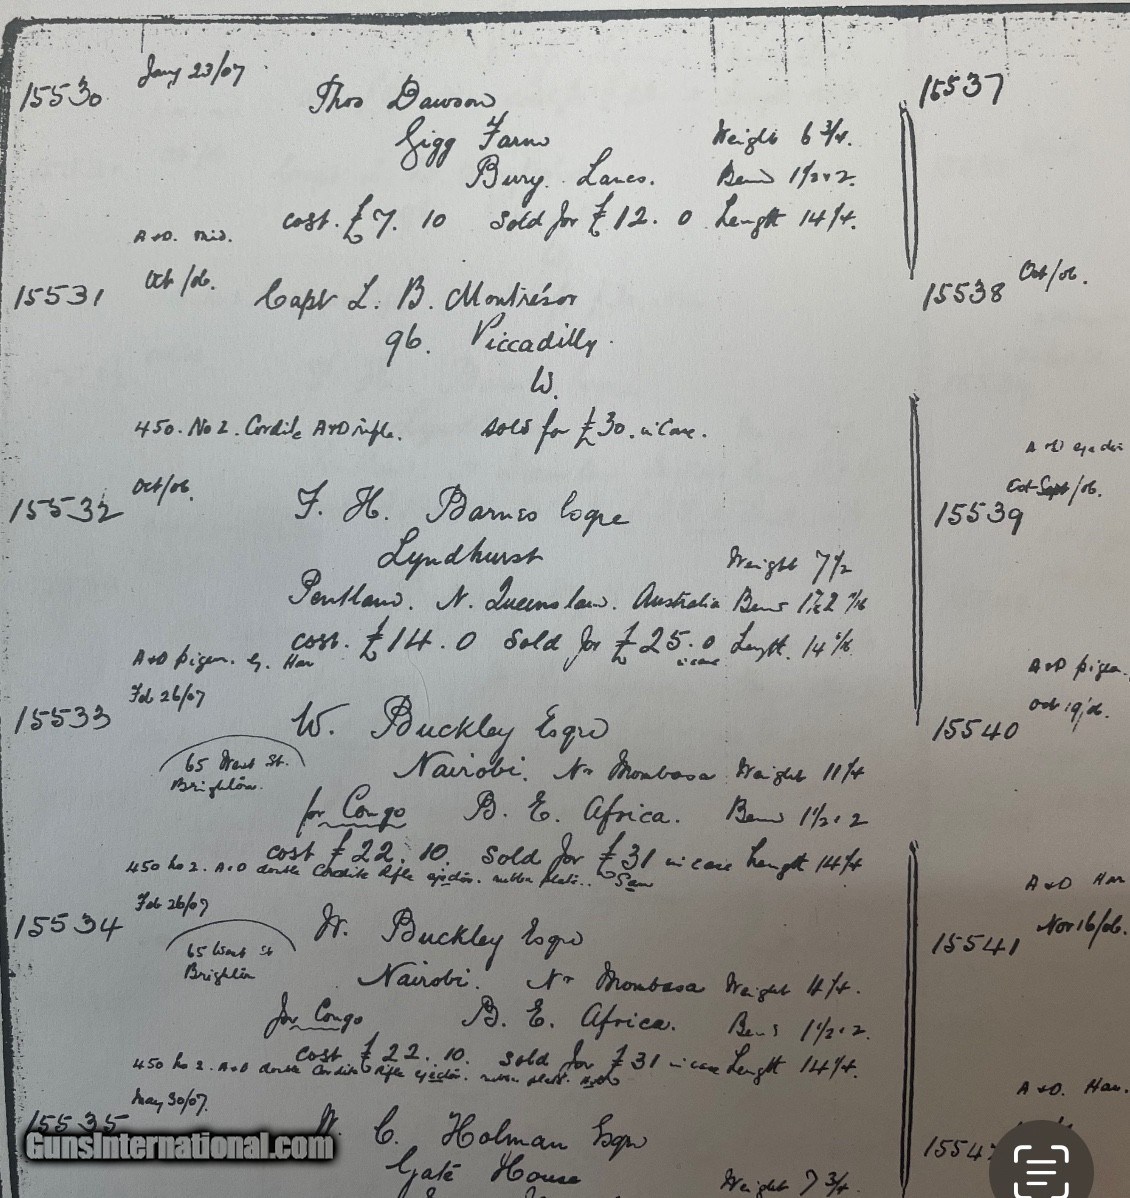 15530 Jany 23/07
Thos Dawson
Gigg Farm Weight 6 3/4.
Bury. Lancs. Bend 1 1/2 . 2.
cost. £7. 10 Sold for £12. 0 Length 14 1/4.
A & D. mid.
15531 Oct /06. Capt L. B. Montrésor
96. Piccadilly.
W.
450. No 2. Cordite A & D rifle. sold for £30. in Case.
15532 Oct/06. F. H. Barnes Esqre
Lyndhurst Weight 7 1/2
Pentland. N. Queensland. Australia Bend
cost. £14. 0 Sold for £25. 0 Length. 14
in case
A & D pigeon. Ham
15533 Feb 26/07
W. Buckley Esqre
65 West St.
Brighton.
Nairobi. Nr Mombasa Weight 11 1/4
for Congo B. E. Africa. Bend 1 1/2 . 2
cost £22. 10. Sold for £31 in case Length 14 1/4
450 No 2. A & D double Cordite Rifle ejector. rubber plate.
15534 Feb 26/07
W. Buckley Esqre
65 West St
Brighton
Nairobi. Nr Mombasa Weight 11 1/4.
for Congo B. E. Africa. Bend 1 1/2 . 2.
cost £22. 10. Sold for £31 in case Length 14 1/4.
450 No 2. A & D double Cordite Rifle ejector. rubber plate.
15535 May 30/07.
C. Holman Esqre
Gate House
Weight 7 3/4.
15537
15538 Oct/06.
A & D
15539 Oct Sept/06.
A & D pigeon.
15540
A & D Ham
15541 Nov 16/06.
A & D. Ham.
1554
GunsInternational.com